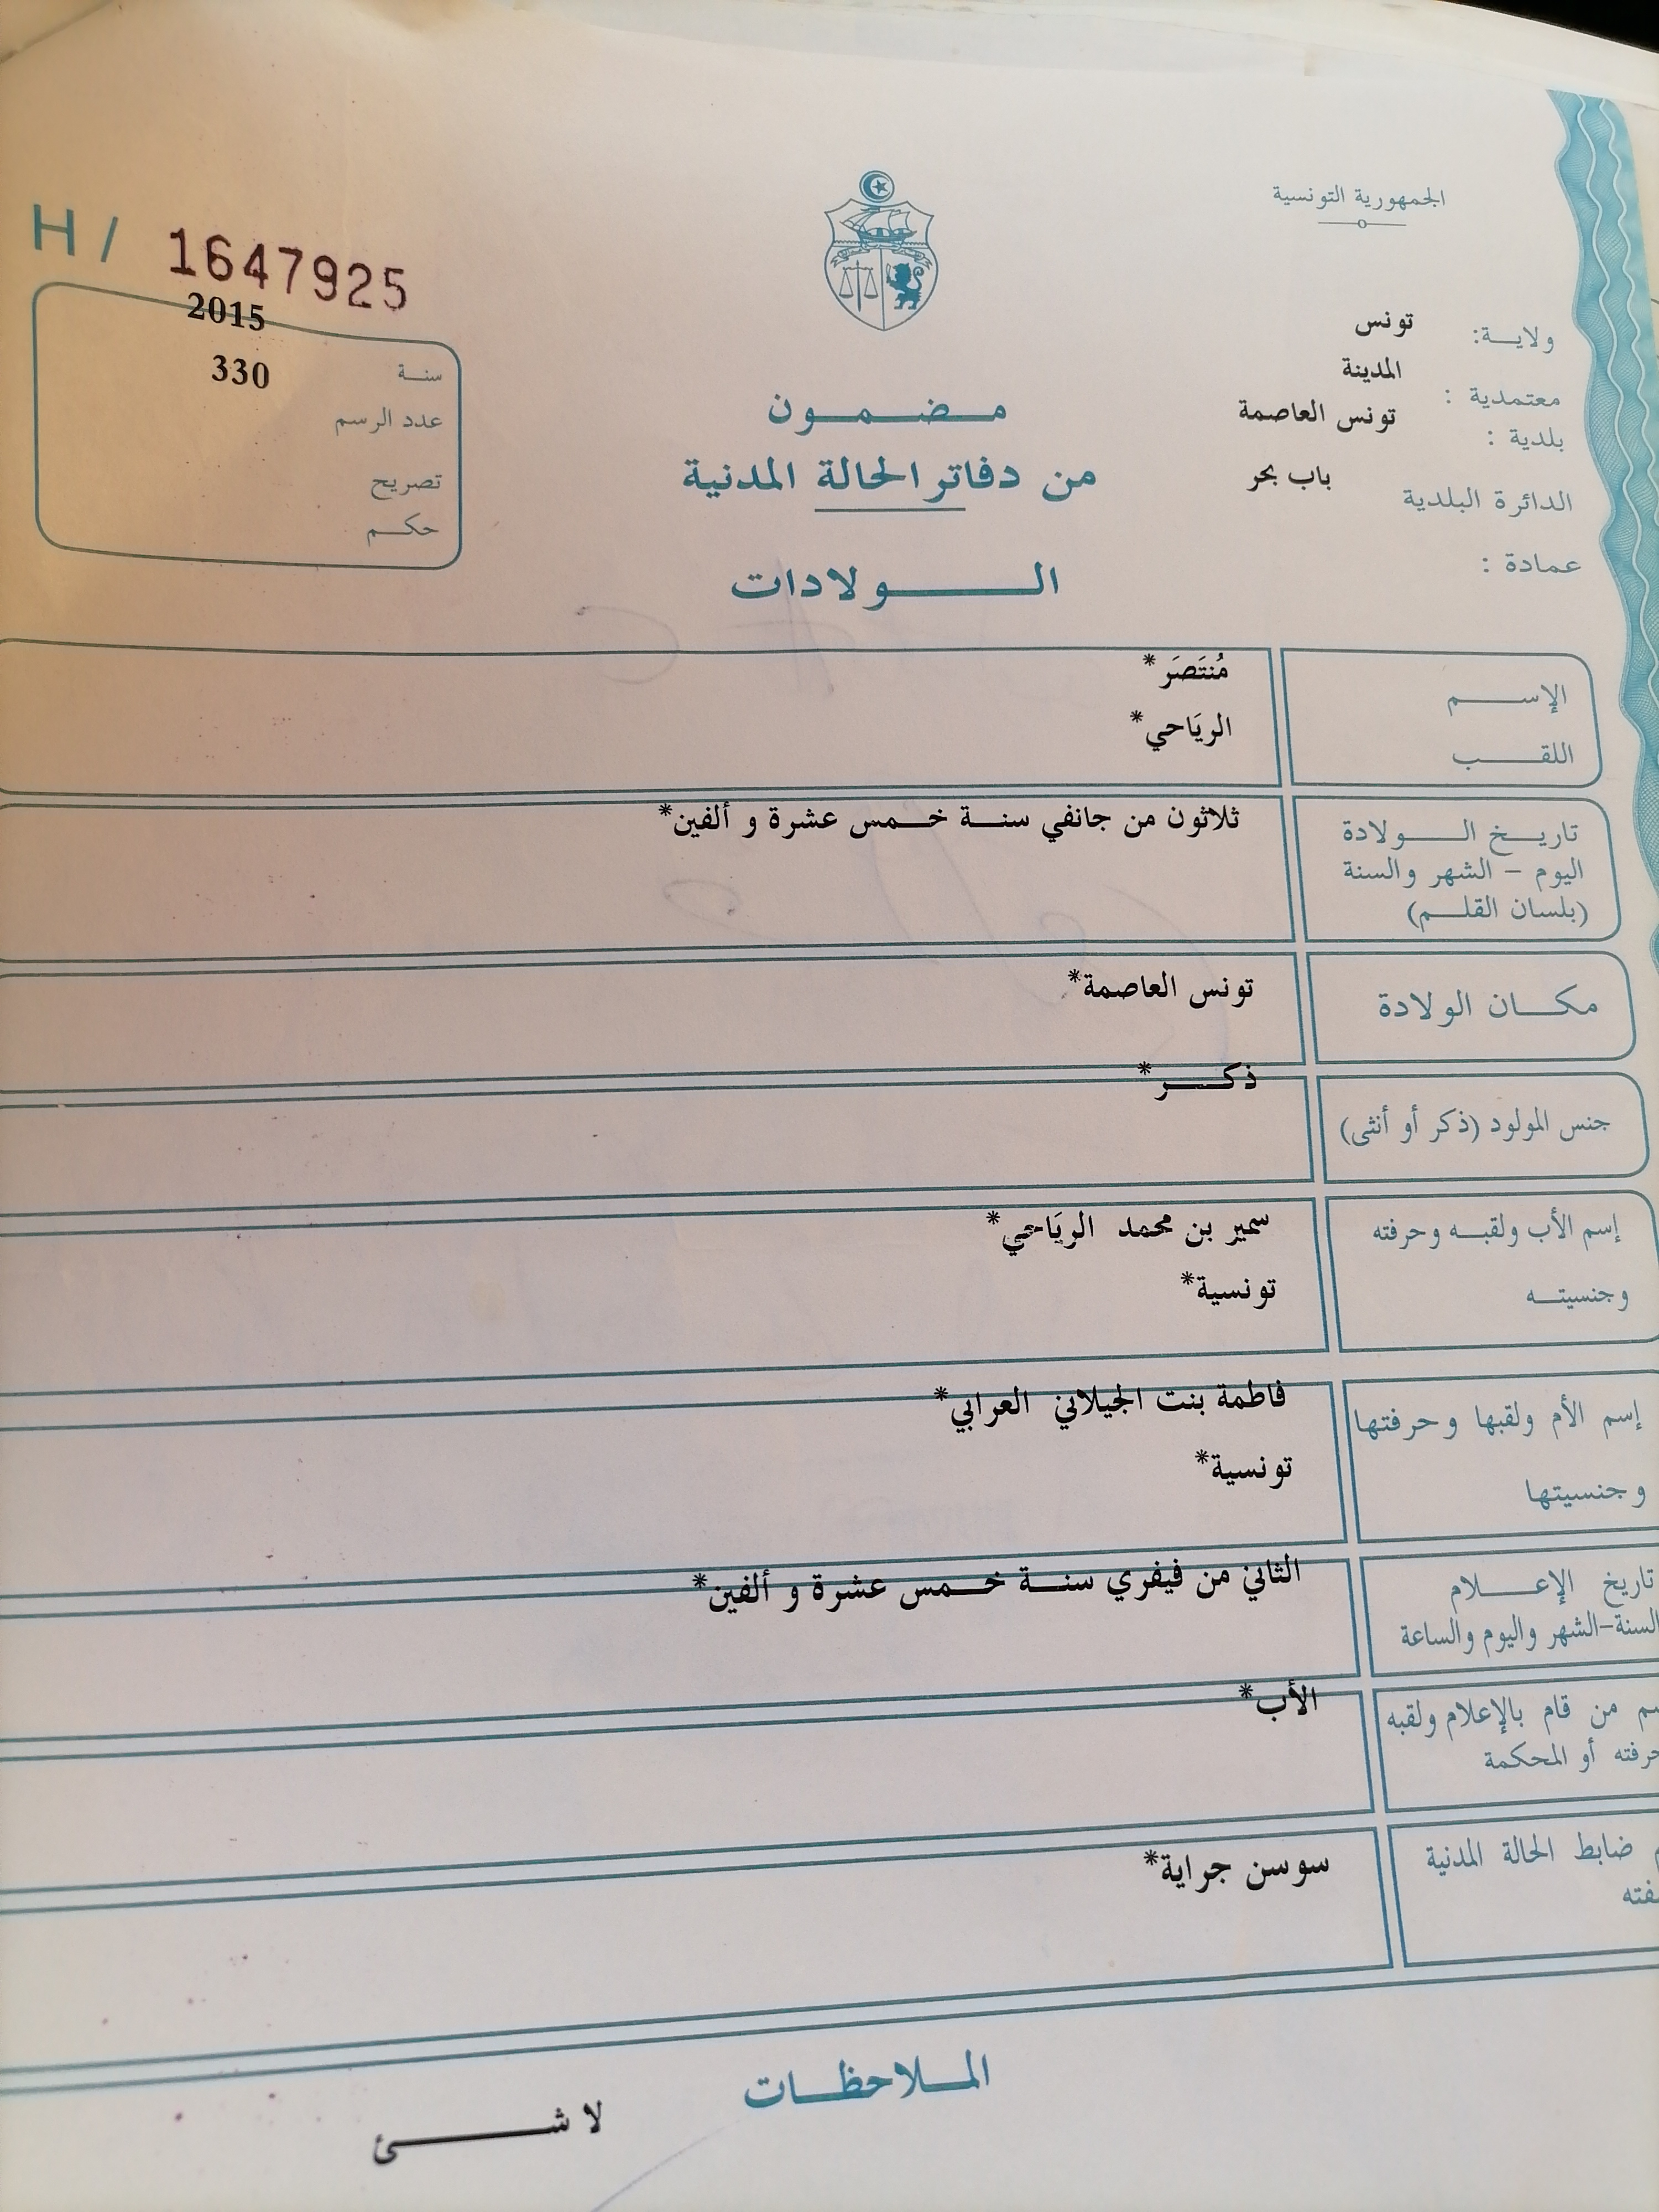 الجمهورية التونسية
ولاية: تونس
معتمدية : المدينة
بلدية : تونس العاصمة
الدائرة البلدية باب بحر
عمادة :
H / 1647925
2015
سنة 330
عدد الرسم
تصريح
حكم
مضمون
من دفاتر الحالة المدنية
الولادات
الإسم مُنتَصَر*
اللقب الريَاحي*
تاريخ الولادة ثلاثون من جانفي سنة خمس عشرة و ألفين*
اليوم – الشهر والسنة
(بلسان القلم)
مكان الولادة تونس العاصمة*
جنس المولود (ذكر أو أنثى) ذكر*
إسم الأب ولقبه وحرفته سمير بن محمد الريَاحي*
وجنسيته تونسية*
إسم الأم ولقبها وحرفتها فاطمة بنت الجيلاني العرابي*
وجنسيتها تونسية*
تاريخ الإعلام الثاني من فيفري سنة خمس عشرة و ألفين*
السنة-الشهر واليوم والساعة
من قام بالإعلام ولقبه الأب*
حرفته أو المحكمة
ضابط الحالة المدنية سوسن جراية*
الملاحظات
لا شئ